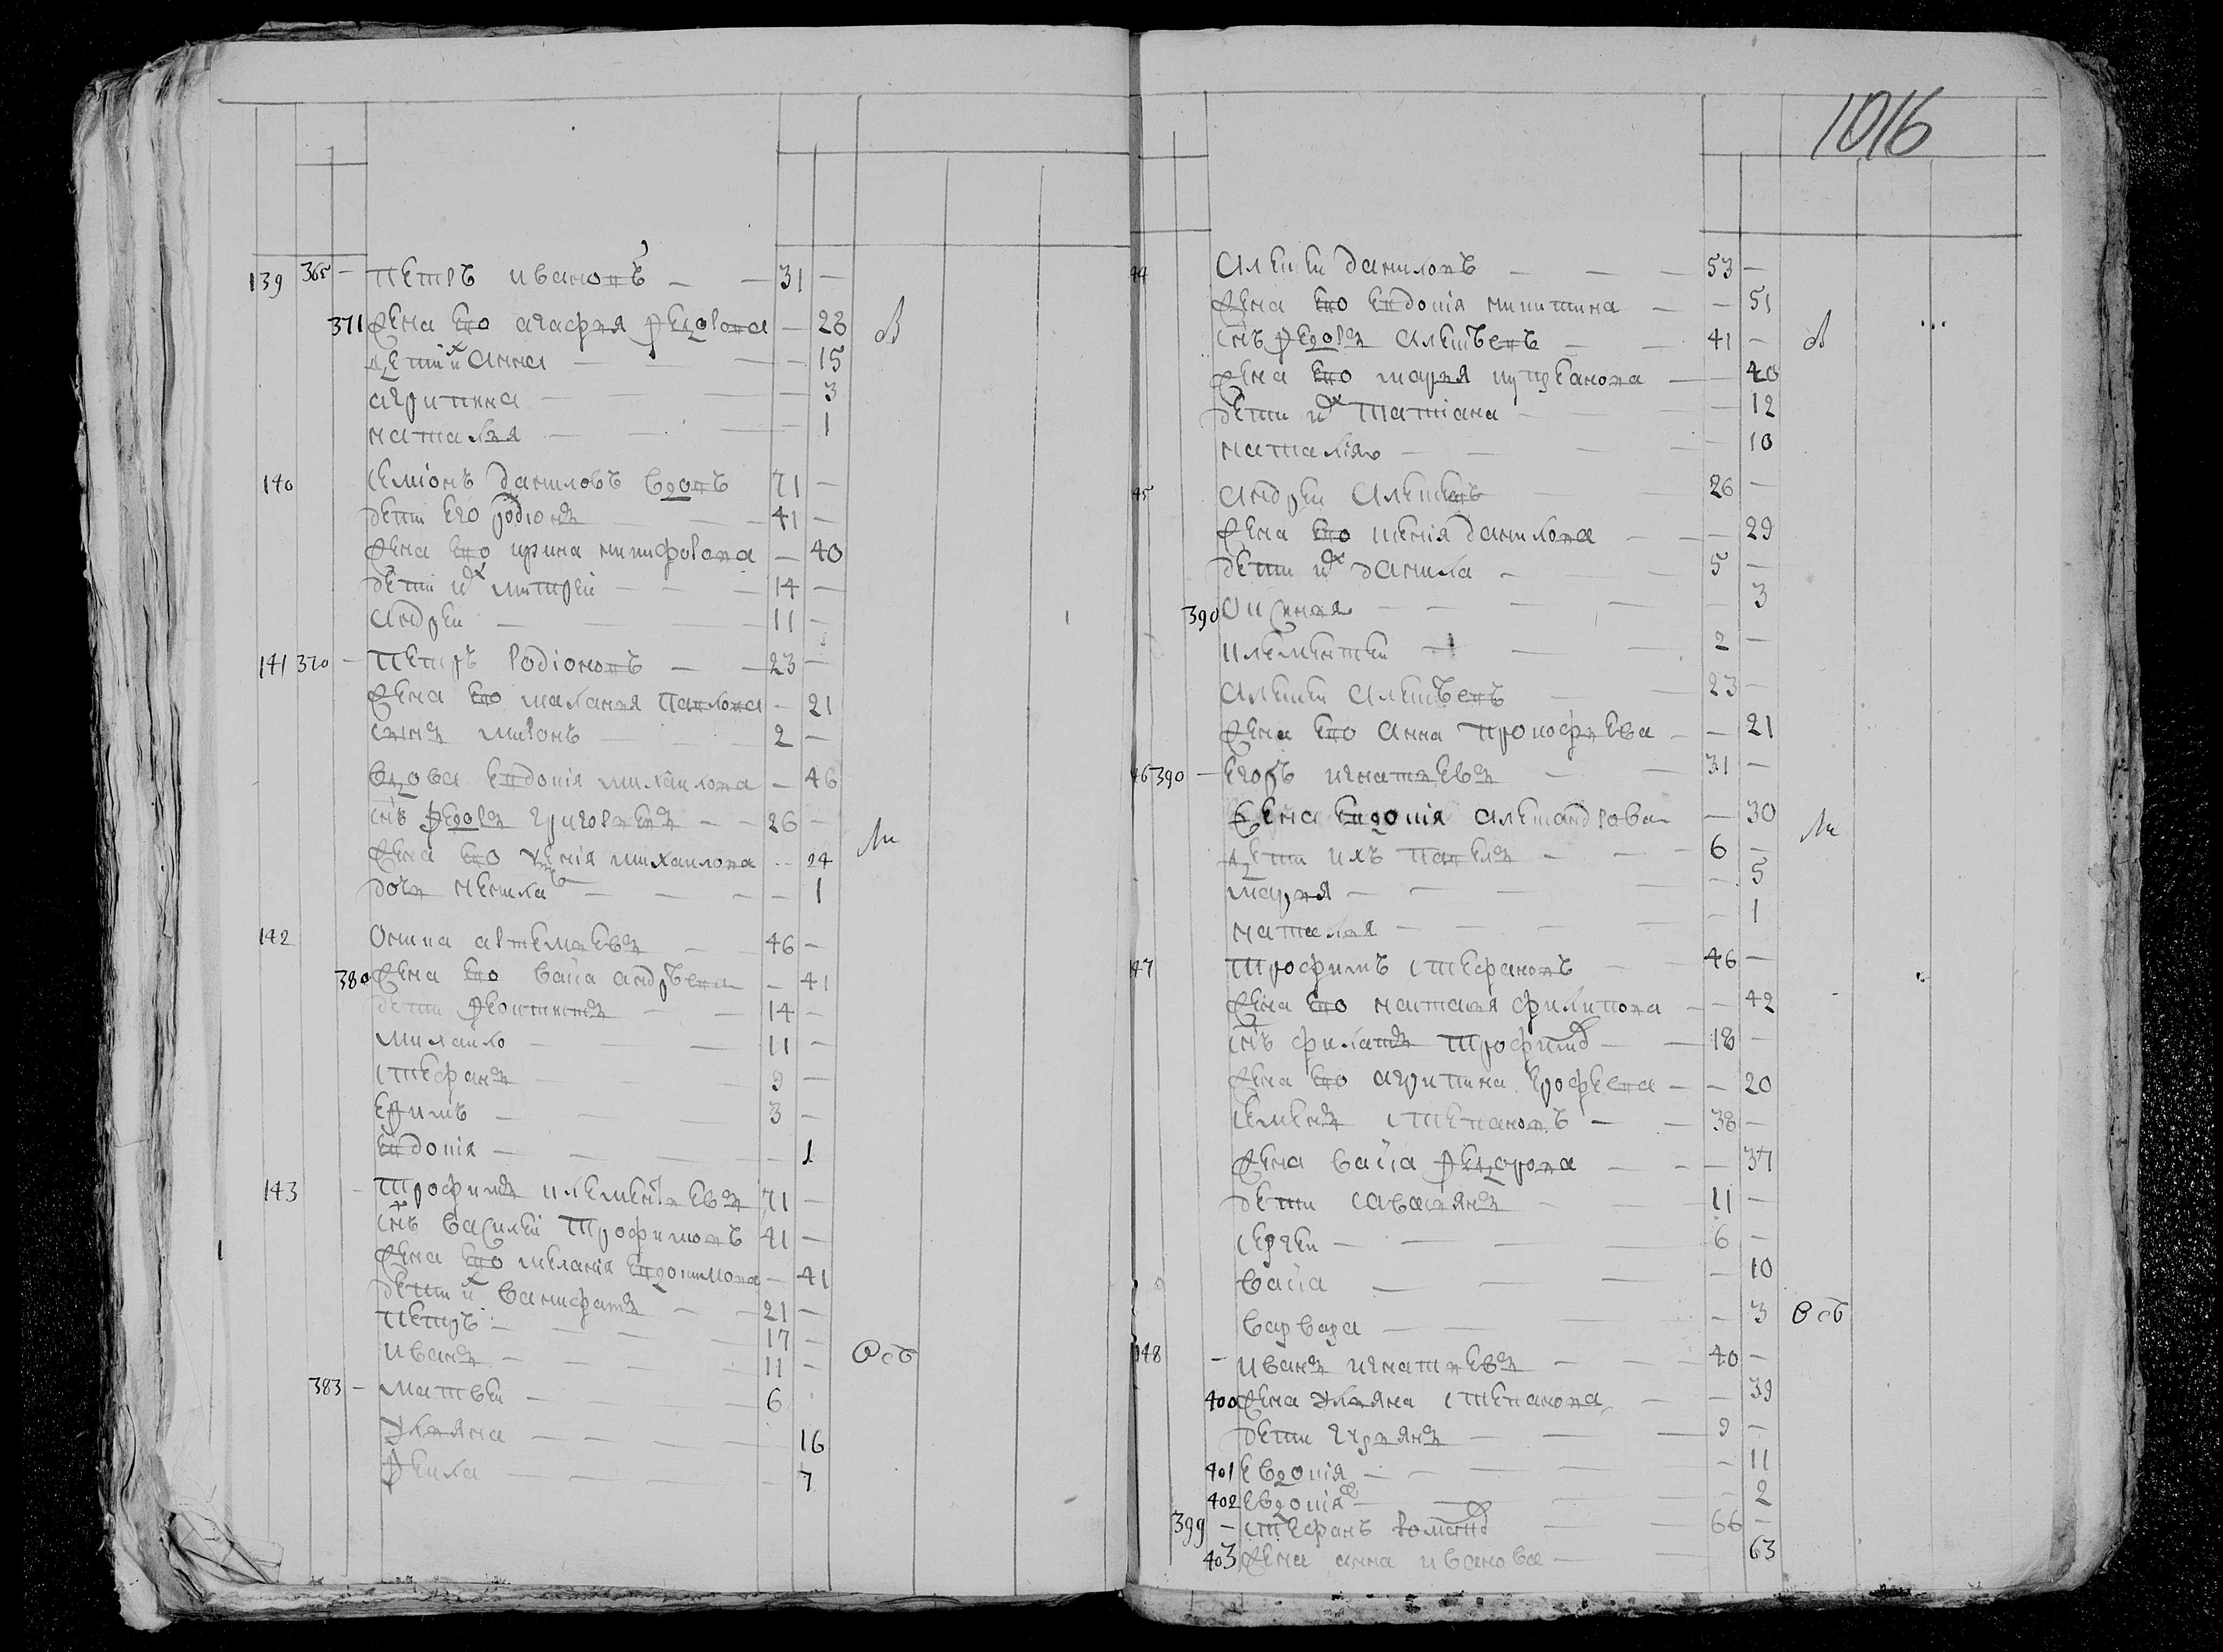 139 365 — Петръ Ивановъ — — 31 —
371 Жена Ево Агафья Федорова — 28 В
Дети их Анна — — 15
Агрипина — — 3
Наталья — — 1
140 Семіонъ Даниловъ Вдовъ 71 —
Дети Его Родионъ — — 41 —
Жена Ево Ирина Никифорова — 40
Дети их Митрей — — 14 —
Андреи — — 11 —
141 370 — Петръ Родіоновъ — — 23 —
Жена Ево Маланья Павлова — 21
Сынъ Миронъ — — 2 —
Вдова Евдокія Михаилова — 46
Снъ Федоръ Григорьевъ — — 26 —
Жена Ево Ѯенія Михаилова — 24 Ли
Дочь — — 1
142 Осипъ Артемьевъ — 46 —
380 Жена Ево Васса Андрѣева — 41
Дети Феоктистъ — — 14 —
Михаило — — 11 —
Стефанъ — 9 —
Ефимъ — — 3 —
Евдокія — — — 1
143 — Трофимъ Клементьевъ 71 —
Снъ Василеі Трофимовъ 41 —
Жена Ево Меланія Евдокимова — 41
Дети их Ванифатъ — — 21 —
Петръ — — — 17 —
Иванъ — — — 11 — Осб
383 — Матвеи — — 6
Ульяна — — — 16
Фекла — — — 7
1016
44 Алексеи Даниловъ — — — 53 —
Жена Ево Евдокія Никитина — — 51
Снъ Федоръ Алексѣевъ — — 41 — В
Жена Ево Марья Купреанова — — 40
Дети их Татіана — — 12
Наталія — — — 10
45 Андреи Алексеевъ — — 26 —
Жена Ево Ксенія Данилова — — — 29
Дети их Данила — — 5 —
390 Оксинья — — — — 3
Клементеи — — — 2 —
Алексеи Алексѣевъ — — 23 —
Жена Ево Анна Прокофьева — — 21
46 390 — Егоръ Игнатьевъ — — 31 —
Жена Евдокія Александрова — 30
Дети ихъ Павелъ — — — 6 — Ли
Марья — — — — 5
Наталья — — — — 1
47 Трофимъ Стефановъ — — 46 —
Жена Ево Наталья Филипова — — 42
Снъ Филатъ Трофимов — — 18 —
Жена Ево Агрипина Ерофеева — — 20
Семенъ Степановъ — — 38 —
Жена Васса Федорова — — — 37
Дети Савастьянъ — — 11 —
Сергеи — — — — 6 —
Васса — — — — 10
Варвара — — — — 3 Осб
148 — Иванъ Игнатьевъ — — — 40 —
400 Жена Ульяна Степанова — — 39
Дети Гурьянъ — — — 9 —
401 Евдокія — — — — — 11
402 Евдокія — — — 2
399 — Стефанъ Романов — — 66 —
403 Жена Анна Иванова — — 63